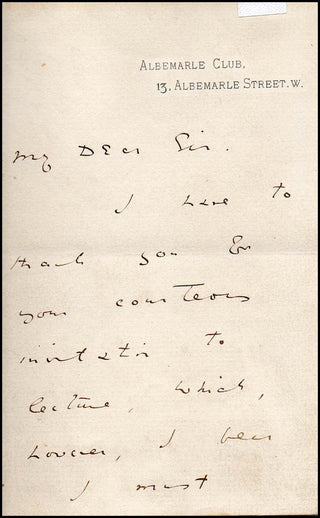 ALBEMARLE CLUB,
13, ALBEMARLE STREET. W.
My Dear Sir.
I have to
thank you for
your courteous
invitation to
lecture, which,
however, I fear
I must